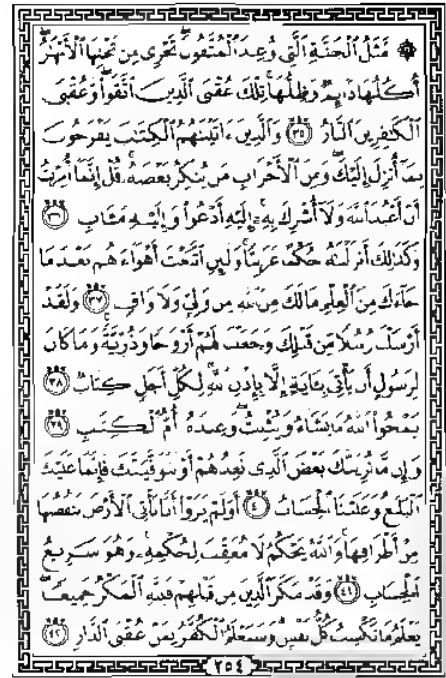 ۞ مَّثَلُ ٱلْجَنَّةِ ٱلَّتِي وُعِدَ ٱلْمُتَّقُونَۖ تَجْرِي مِن تَحْتِهَا ٱلْأَنْهَٰرُۖ
أُكُلُهَا دَآئِمٌ وَظِلُّهَاۚ تِلْكَ عُقْبَى ٱلَّذِينَ ٱتَّقَواْۖ وَّعُقْبَى
ٱلْكَٰفِرِينَ ٱلنَّارُ ٣٥ وَٱلَّذِينَ ءَاتَيْنَٰهُمُ ٱلْكِتَٰبَ يَفْرَحُونَ
بِمَآ أُنزِلَ إِلَيْكَۖ وَمِنَ ٱلْأَحْزَابِ مَن يُنكِرُ بَعْضَهُۥۚ قُلْ إِنَّمَآ أُمِرْتُ
أَنْ أَعْبُدَ ٱللَّهَ وَلَآ أُشْرِكَ بِهِۦٓۚ إِلَيْهِ أَدْعُواْ وَإِلَيْهِ مَـَٔابِ ٣٦
وَكَذَٰلِكَ أَنزَلْنَٰهُ حُكْمًا عَرَبِيًّاۚ وَلَئِنِ ٱتَّبَعْتَ أَهْوَآءَهُم بَعْدَ مَا
جَآءَكَ مِنَ ٱلْعِلْمِ مَا لَكَ مِنَ ٱللَّهِ مِن وَلِيٍّ وَلَا وَاقٍ ٣٧ وَلَقَدْ
أَرْسَلْنَا رُسُلًا مِّن قَبْلِكَ وَجَعَلْنَا لَهُمْ أَزْوَٰجًا وَذُرِّيَّةًۚ وَمَا كَانَ
لِرَسُولٍ أَن يَأْتِيَ بِـَٔايَةٍ إِلَّا بِإِذْنِ ٱللَّهِۗ لِكُلِّ أَجَلٍ كِتَابٌ ٣٨
يَمْحُواْ ٱللَّهُ مَا يَشَآءُ وَيُثْبِتُۖ وَعِندَهُۥٓ أُمُّ ٱلْكِتَٰبِ ٣٩
وَإِن مَّا نُرِيَنَّكَ بَعْضَ ٱلَّذِي نَعِدُهُمْ أَوْ نَتَوَفَّيَنَّكَ فَإِنَّمَا عَلَيْكَ
ٱلْبَلَٰغُ وَعَلَيْنَا ٱلْحِسَابُ ٤٠ أَوَلَمْ يَرَوْاْ أَنَّا نَأْتِي ٱلْأَرْضَ نَنقُصُهَا
مِنْ أَطْرَافِهَاۚ وَٱللَّهُ يَحْكُمُ لَا مُعَقِّبَ لِحُكْمِهِۦۚ وَهُوَ سَرِيعُ
ٱلْحِسَابِ ٤١ وَقَدْ مَكَرَ ٱلَّذِينَ مِن قَبْلِهِمْ فَلِلَّهِ ٱلْمَكْرُ جَمِيعًاۖ
يَعْلَمُ مَا تَكْسِبُ كُلُّ نَفْسٍۗ وَسَيَعْلَمُ ٱلْكُفَّٰرُ لِمَنْ عُقْبَى ٱلدَّارِ ٤٢
٢٥٤